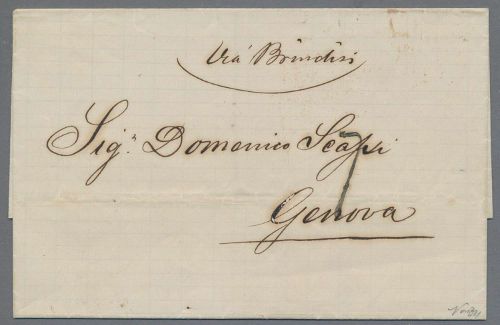 Via Brindisi
Sig.r Domenico Scappi
7
Genova